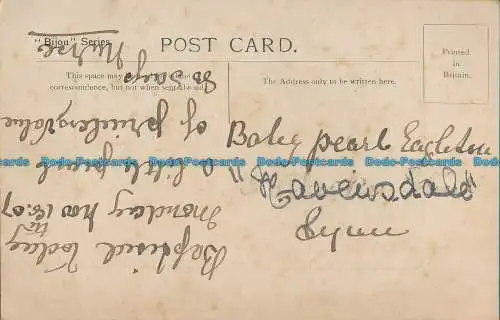 "Bijou" Series.
POST CARD.
Printed
in
Britain.
This space may
correspondence, but not when sent
The Address only to be written here.
Baby Pearl Eagleton
"Ravensdale"
Lynn
Baptised Today
Monday Nov 18.07
"A little pearl
of priceless value"
So says
Nurse
Dodo-Postcards Dodo-Postcards Dodo-Postcards Dodo-Postcards Dodo-Postcards Dodo-Postcards